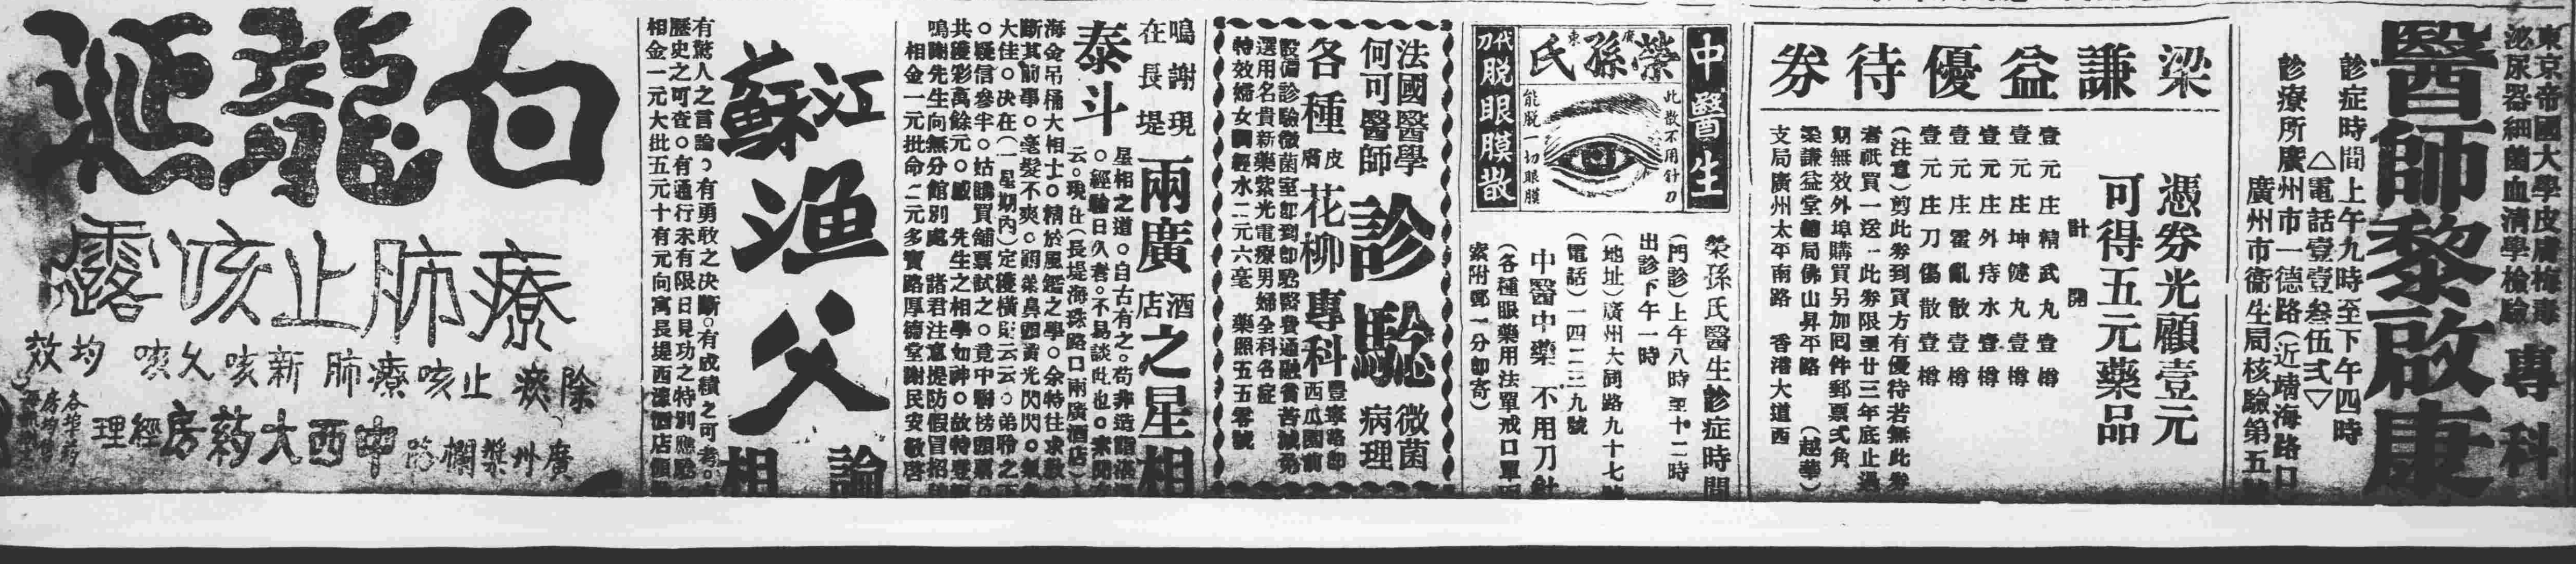 東京帝國大學皮膚梅毒
泌尿器細菌血清學檢驗
專科
醫師黎啟康
診症時間上午九時至下午四時
△電話壹壹叁伍弍▽
診療所廣州市一德路(近靖海路口
廣州市衞生局核驗第五
梁謙益優待券
憑券光顧壹元
可得五元藥品
計開
壹元庄精武丸壹樽
壹元庄坤健丸壹樽
壹元庄外痔水壹樽
壹元庄霍亂散壹樽
壹元庄刀傷散壹樽
(注意)剪此券到買方有優待若無此券
者祇買一送一此券限至廿三年底止過
期無效外埠購買另加囘件郵票弍角
梁謙益堂總局佛山昇平路(越華)
支局廣州太平南路 香港大道西
中醫生
廣東
榮孫氏
此散不用針刀
能脫一切眼膜
代刀脫眼膜散
榮孫氏醫生診症時間
(門診)上午八時至十二時
出診下午一時
(地址)廣州大同路九十七
(電話)一四二三九號
中醫中藥 不用刀針
(各種眼藥用法單戒口單
索附郵一分即寄)
法國醫學
何可醫師
診驗
微菌
病理
各種
皮膚
花柳
專科
豐寧路即
西瓜園前
設備診驗微菌室即到即驗醫費通融貧苦減免
選用名貴新藥紫光電療男婦全科各症
特效婦女調經水二元六毫 藥照五五零號
鳴謝現
在長堤
兩廣
酒店
之星相
泰斗
星相之道。自古有之。苟非造詣深
。經驗日久者。不易談此也。
云。現在(長堤海珠路口兩廣酒店)
海金吊桶大相士。精於風鑑之學。余特往求教
斷其前事。毫髮不爽。
大佳。决在(一星期內)定獲橫財云云。弟聆之下
。疑信參半。姑購買舖票試之。竟中
共獲彩萬餘元。感 先生之相學如神。故特登報
鳴謝先生向無分館別處 諸君注意提防假冒招
相金一元批命二元多寶路厚德堂謝民安敬啓
江蘇
漁父
論相
有驚人之言論。有勇敢之决斷。有成績之可考。
歷史之可查。有通行未有限日見功之特別應驗
相金一元大批五元十有元向寓長堤西濠酒店
白龍涎
療肺止咳露
除痰 止咳 療肺 新咳 久咳 均效
廣州槳欄路中西大葯房經理
各埠葯房均售